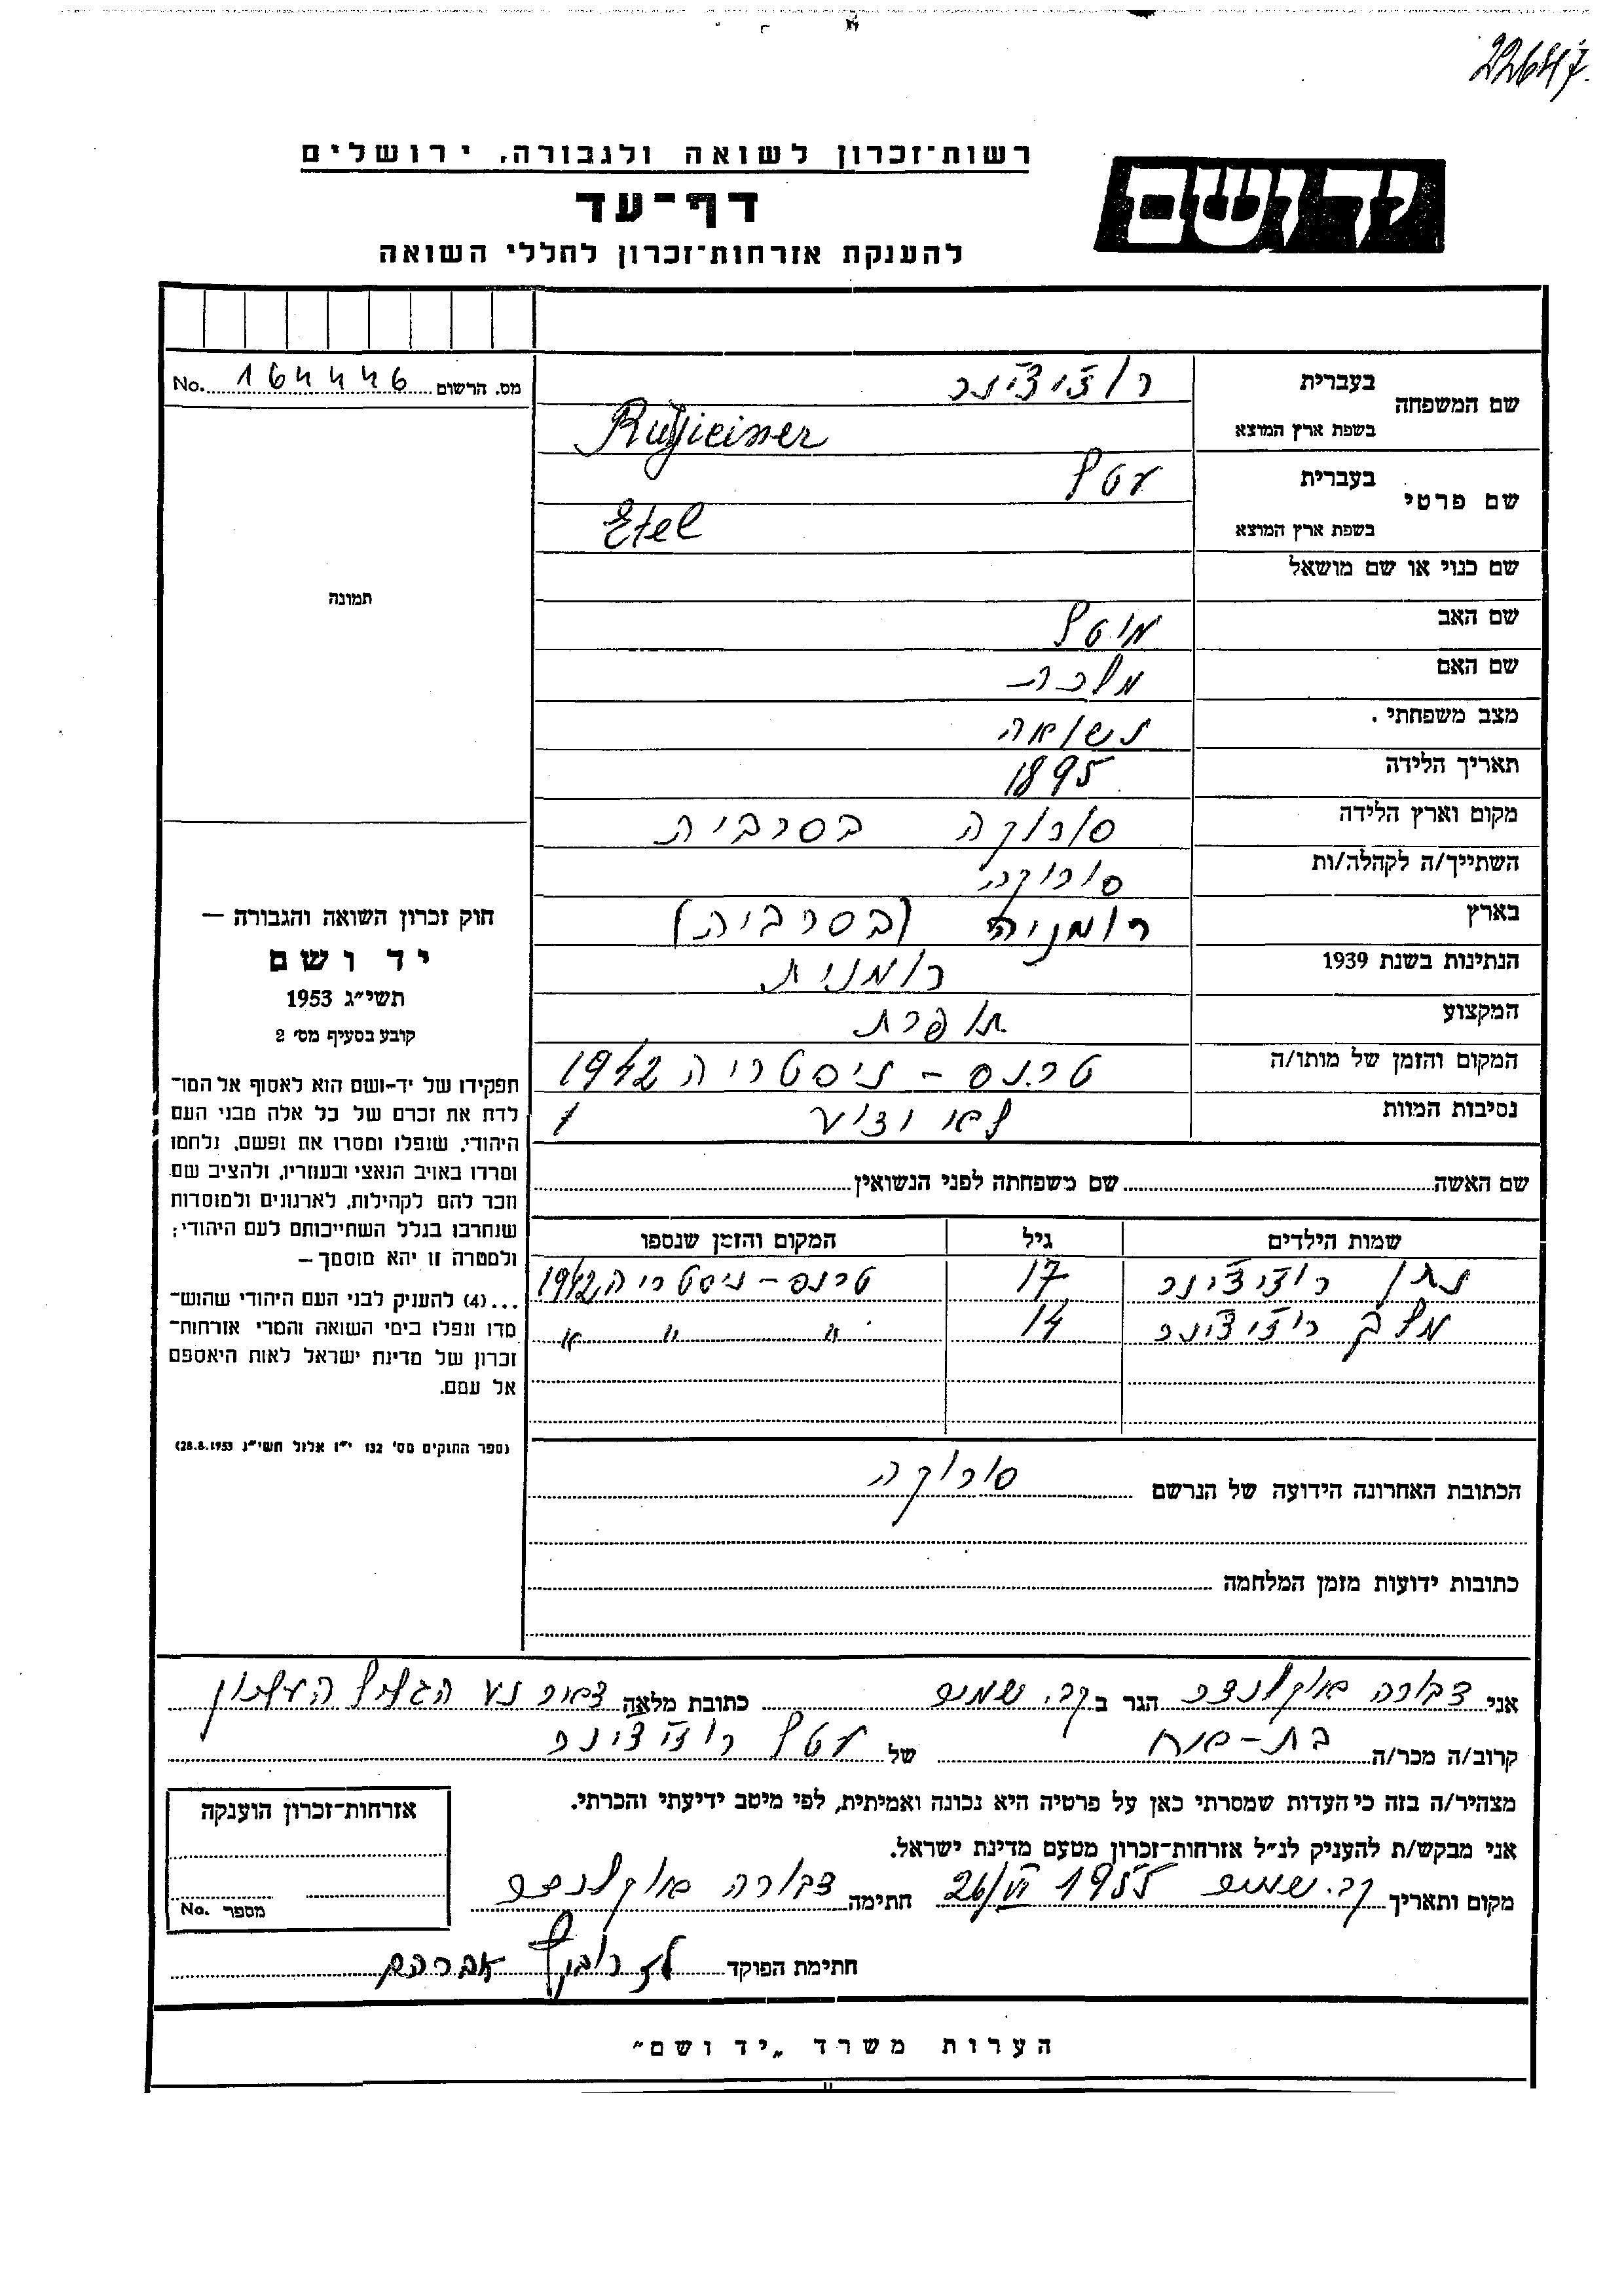 22647
רשות־זכרון לשואה ולגבורה, ירושלים
יד ושם
דף־עד
להענקת אזרחות־זכרון לחללי השואה
מס. הרשום 164446 No.
שם המשפחה
בעברית
בשפת ארץ המוצא
Etel
שם פרטי
בעברית עטל
בשפת ארץ המוצא
שם כנוי או שם מושאל
שם האב מוטל
שם האם מלכה
מצב משפחתי נשואה
תאריך הלידה 1895
מקום וארץ הלידה סורוקה בסרביה
השתייך/ה לקהלה/ות סורוקה
בארץ רומניה (בסרביה)
הנתינות בשנת 1939 רומנית
המקצוע תופרת
המקום והזמן של מותו/ה טרנס-ניסטריה 1942
נסיבות המוות לא ידוע
שם האשה שם משפחתה לפני הנשואין
שמות הילדים גיל המקום והזמן שנספו
נתן 17 טרנס-ניסטריה 1942
14 " " "
הכתובת האחרונה הידועה של הנרשם סורוקה
כתובות ידועות מזמן המלחמה
תמונה
חוק זכרון השואה והגבורה —
יד ושם
תשי״ג 1953
קובע בסעיף מס׳ 2
תפקידו של יד-ושם הוא לאסוף אל המו־
לדת את זכרם של כל אלה מבני העם
היהודי, שנפלו ומסרו את נפשם, נלחמו
ומרדו באויב הנאצי ובעוזריו, ולהציב שם
וזכר להם לקהילות, לארגונים ולמוסדות
שנחרבו בגלל השתייכותם לעם היהודי;
ולמטרה זו יהא מוסמך—
...(4) להעניק לבני העם היהודי שהוש־
מדו ונפלו בימי השואה והמרי אזרחות־
זכרון של מדינת ישראל לאות היאספם
אל עמם.
(ספר החוקים מס׳ 132 י״ז אלול תשי״ג 28.8.1953)
אני דבורה הגר ב כתובת מלאה דאר נע הגליל העליון
קרוב/ה מכר/ה בת-אח של עטל
מצהיר/ה בזה כי העדות שמסרתי כאן על פרטיה היא נכונה ואמיתית, לפי מיטב ידיעתי והכרתי.
אני מבקש/ת להעניק לנ״ל אזרחות־זכרון מטעם מדינת ישראל.
מקום ותאריך 26/VI 1955 חתימה דבורה
חתימת הפוקד אברהם
אזרחות־זכרון הוענקה
מספר No.
הערות משרד „יד ושם״